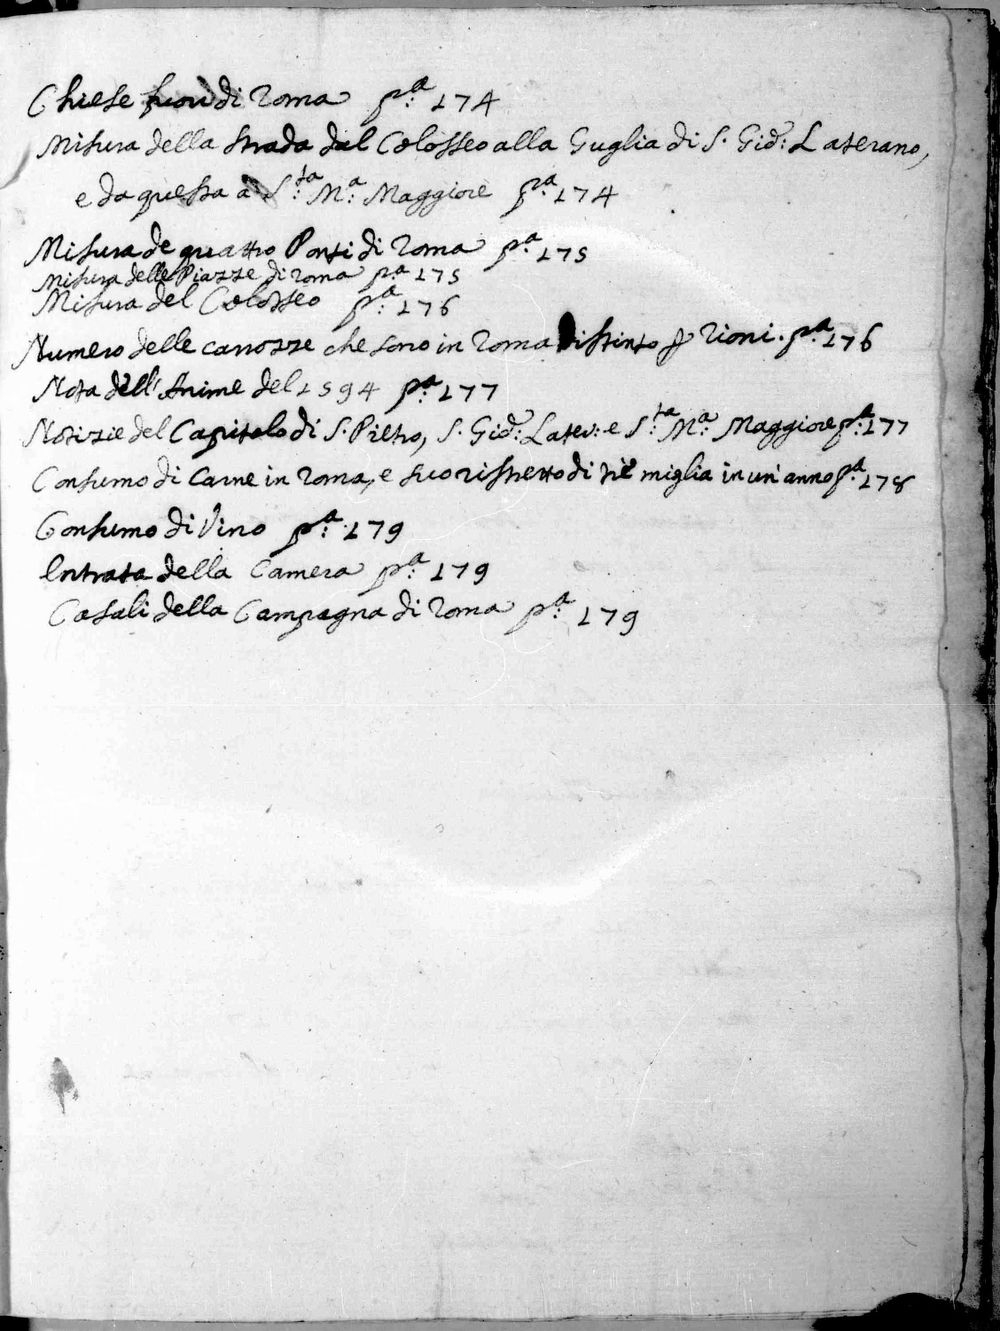 Chiese fuori di Roma pª: 174
Misura della strada dal Colosseo alla Guglia di S. Gio: Laterano,
e da questa a S:ta Mª: Maggiore pª: 174
Misura de quattro Ponti di Roma pª: 175
Misura delle Piazze di Roma pª: 175
Misura del Colosseo pª: 176
Numero delle carrozze che sono in Roma distinto p Rioni. pª: 176
Nota dell'Anime del 1594 pª: 177
Notizie del Capitolo di S. Pietro, S. Gio: Later: e S:ta Mª: Maggiore pª: 177
Consumo di carne in Roma, e suo ristretto di miglia in un'anno pª: 178
Consumo di Vino pª: 179
Entrata della Camera pª: 179
Casali della Campagna di Roma pª: 179